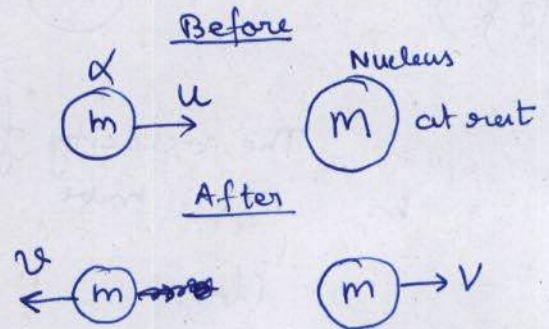 Before
α Nucleus
m u m at rest
After
v m m V